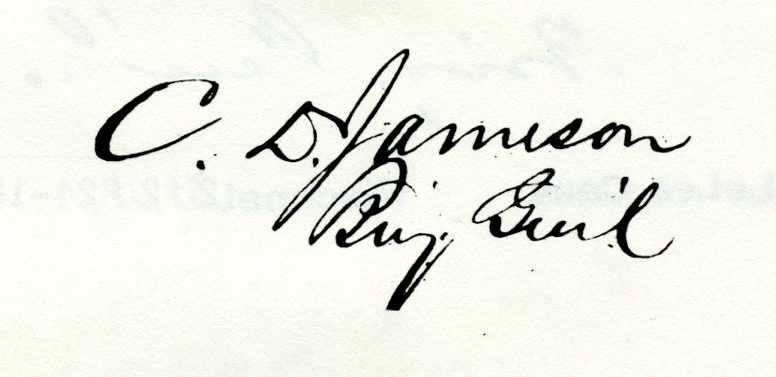 C. D. Jameson
Brig. Gen'l